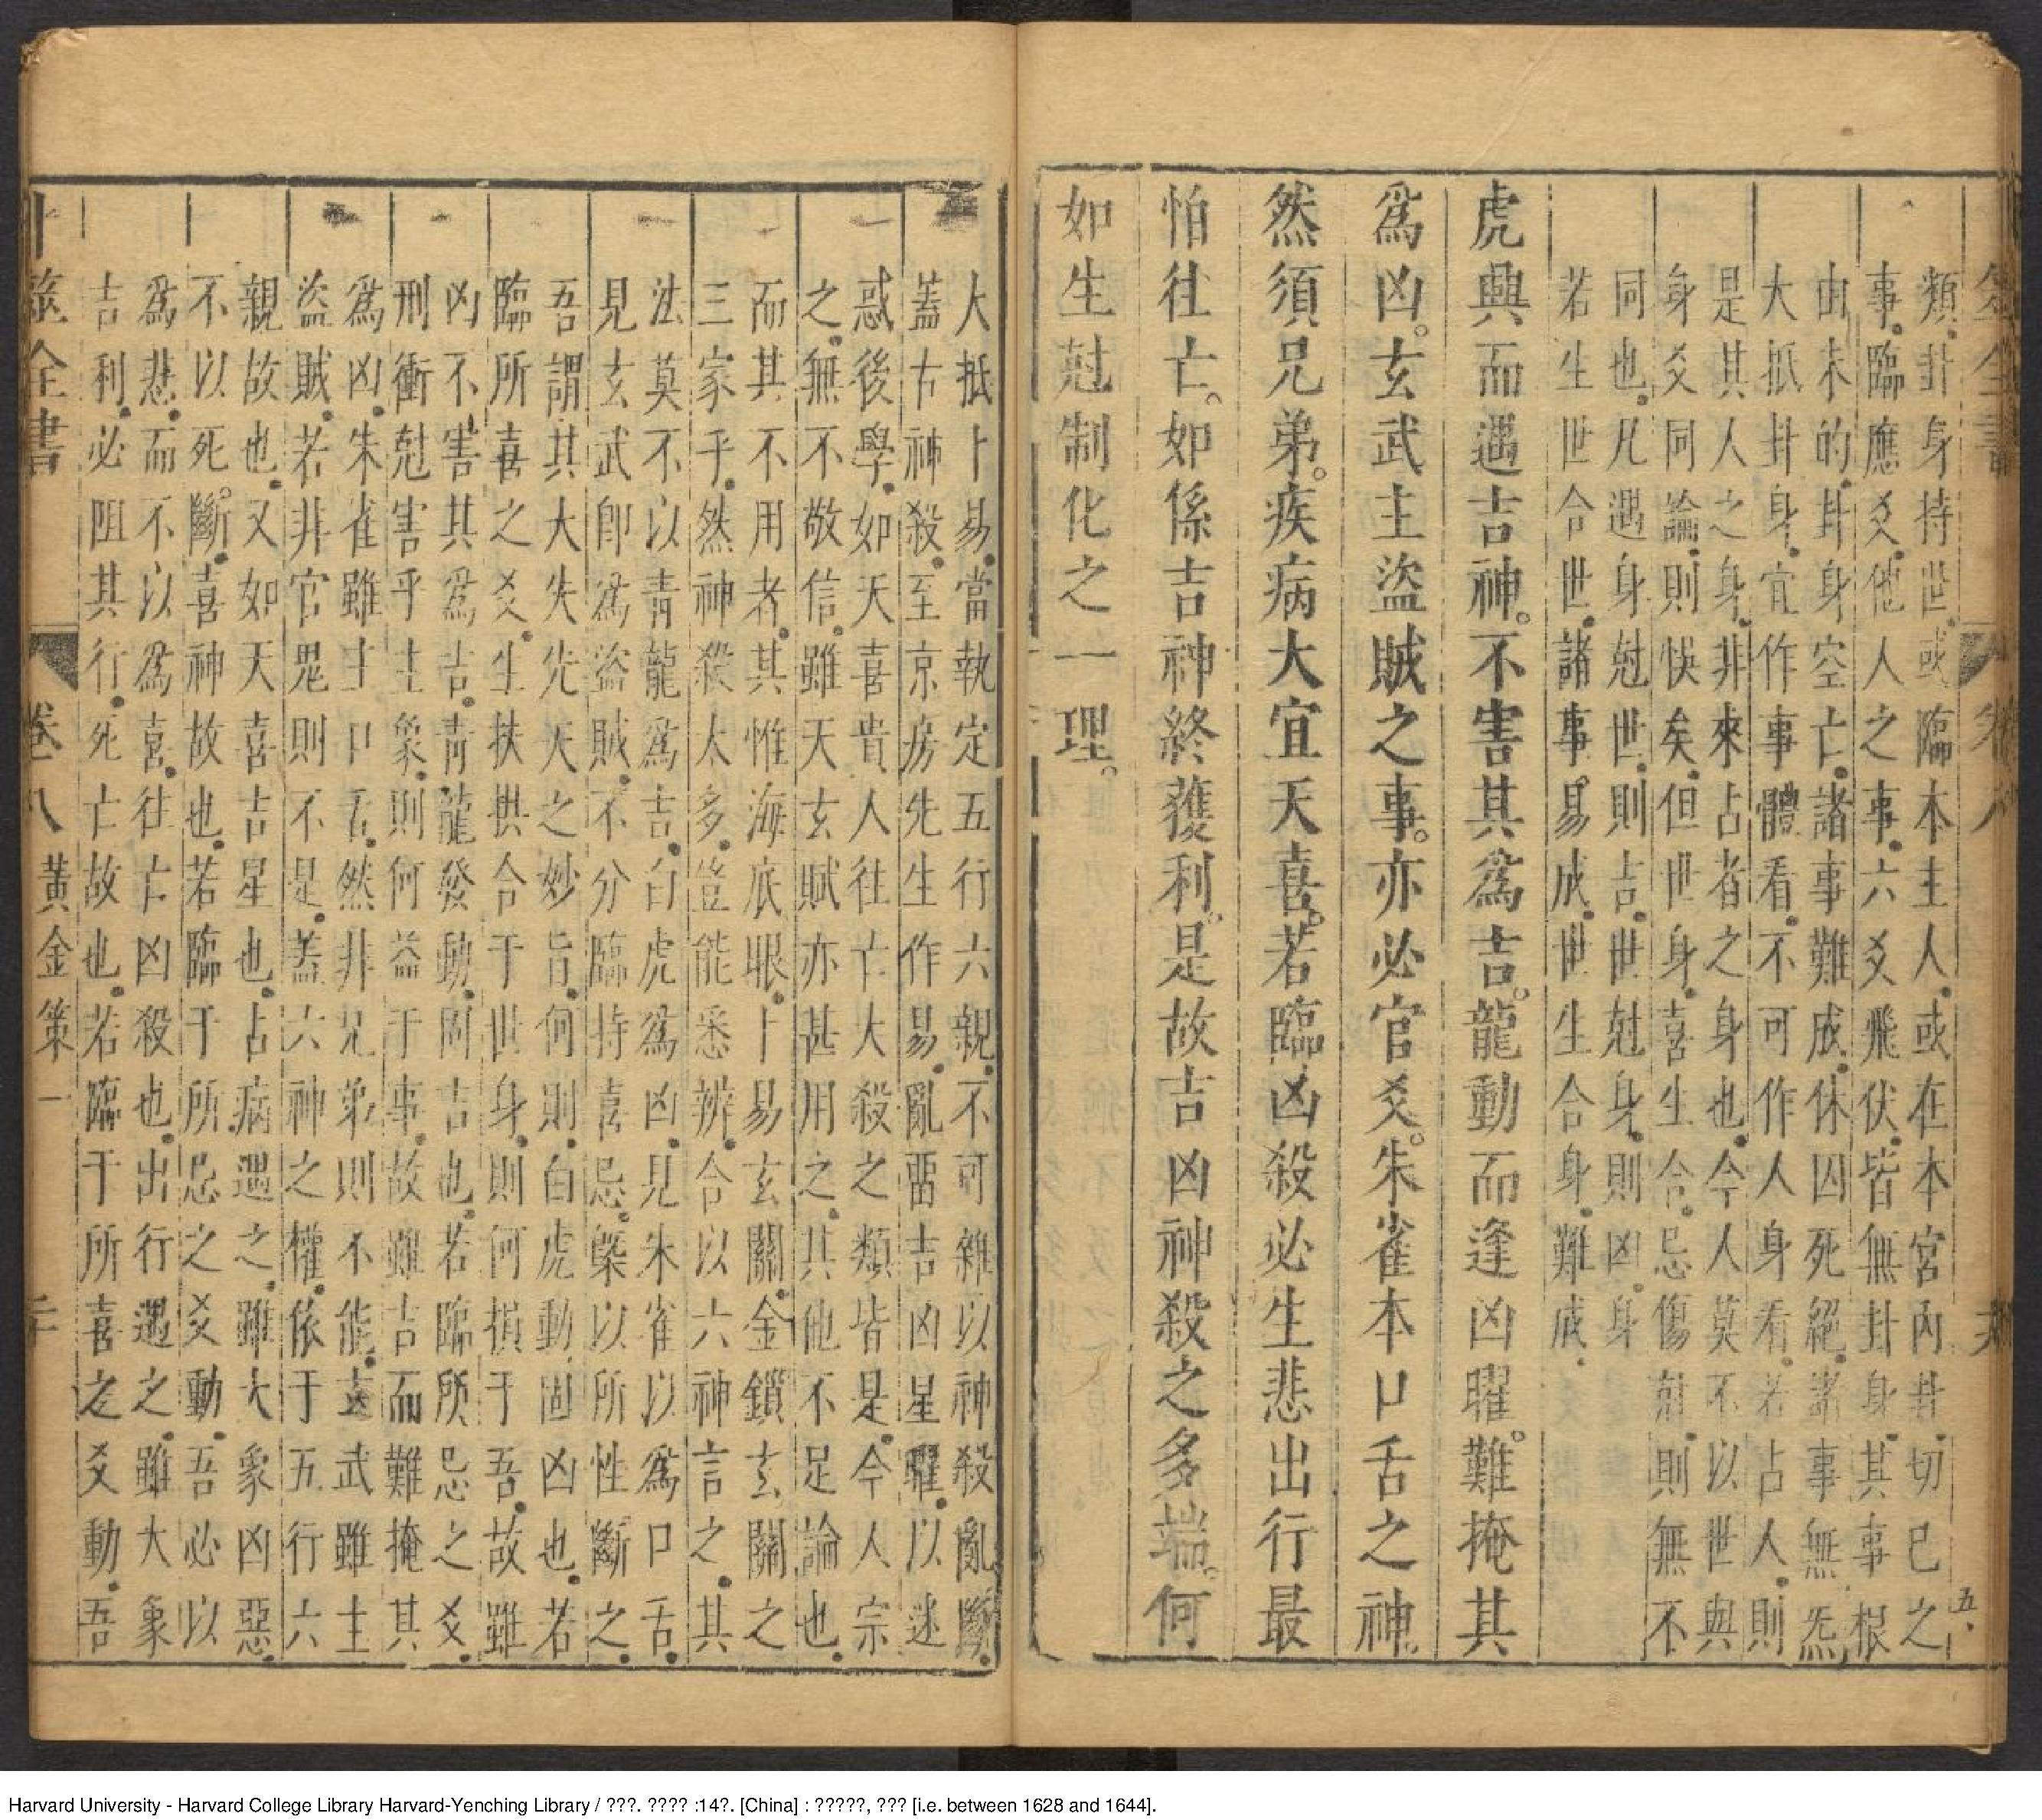 類。卦身持世。或臨本主人。或在本宮內卦。切已之
事。臨應爻。他人之事。六爻飛伏。皆無卦身。其事根
由未的。卦身空亡。諸事難成。休囚死絕。諸事無炁。
大抵卦身。宜作事體看。不可作人身看。若占人。則
是其人之身。非來占者之身也。今人莫不以世與
身爻同論。則悞矣。但世身。喜生合。忌傷尅。則無不
同也。凡遇身尅世。則吉。世尅身。則凶。身
若生世合世。諸事易成。世生合身。難成。
虎興而遇吉神。不害其爲吉。龍動而逢凶曜。難掩其
爲凶。玄武主盜賊之事。亦必官爻。朱雀本口舌之神。
然須兄弟。疾病大宜天喜。若臨凶殺必生悲出行最
怕往亡。如係吉神終獲利。是故吉凶神殺之多端。何
如生尅制化之一理。
大抵卜易。當執定五行六親。不可雜以神殺亂斷。
蓋古神殺。至京房先生作易。亂畱吉凶星曜。以迷
惑後學。如天喜貴人往亡大殺之類皆是。今人宗
之。無不敬信。雖天玄賦亦甚用之。其他不足論也。
而其不用者。其惟海底眼。卜易玄關。金鎖玄關之
三家乎。然神殺太多。豈能悉辨。合以六神言之。其
法莫不以青龍爲吉。白虎爲凶。見朱雀以爲口舌。
見玄武卽爲盜賊。不分臨持喜忌。槩以所性斷之。
吾謂其大失先天之妙旨。何則。白虎動。固凶也。若
臨所喜之爻。生扶拱合于世身。則何損于吾。故雖
凶不害其爲吉。青龍發動。固吉也。若臨所忌之爻。
刑衝尅害乎主象。則何益于事。故雖吉而難掩其
爲凶。朱雀雖主口舌。然非兄弟則不能。玄武雖主
盜賊。若非官鬼則不是。蓋六神之權。依于五行六
親故也。又如天喜吉星也。占病遇之。雖大象凶惡。
不以死斷。喜神故也。若臨于所忌之爻動。吾必以
爲悲。而不以爲喜。往亡凶殺也。出行遇之。雖大象
吉利。必阻其行。死亡故也。若臨于所喜之爻動。吾
卜筮全書 卷八 黃金策一